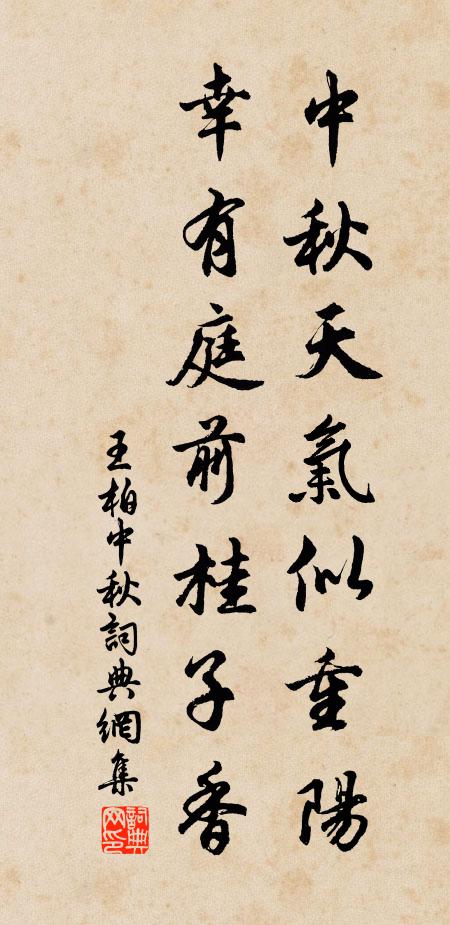 中秋天氣似重陽
幸有庭前桂子香
王柏中秋詞典網集
詞典網印